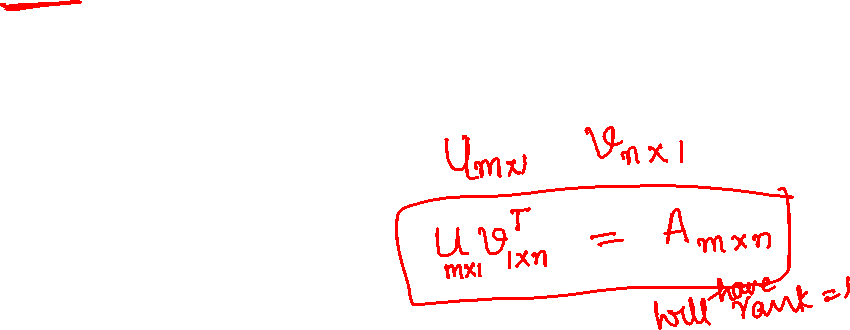 u_{m×1} v_{n×1}
u_{m×1} v^T_{1×n} = A_{m×n}
will have rank = 1